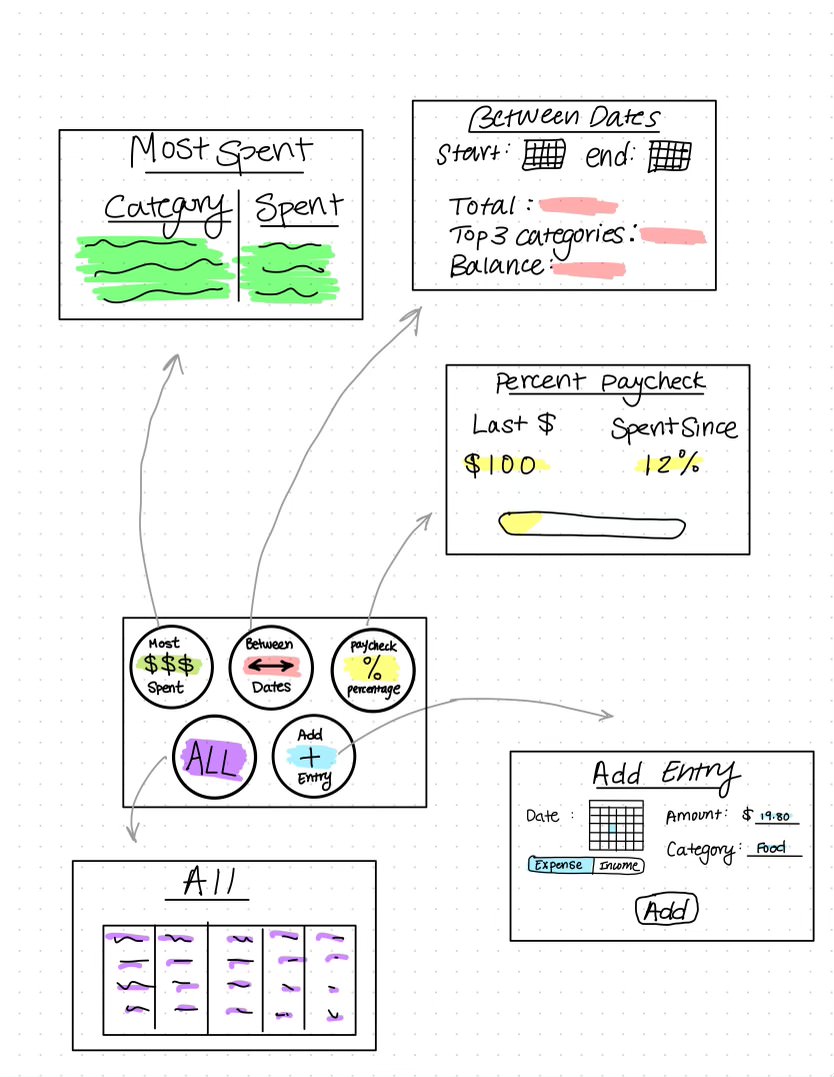 Most Spent
Category Spent
Between Dates
Start: end:
Total:
Top 3 categories:
Balance:
Percent Paycheck
Last $ Spent Since
$100 12%
Most
$$$
Spent
Between
Dates
paycheck
%
percentage
ALL
Add
+
Entry
Add Entry
Date : Amount: $ 19.80
Category: Food
Expense Income
Add
All